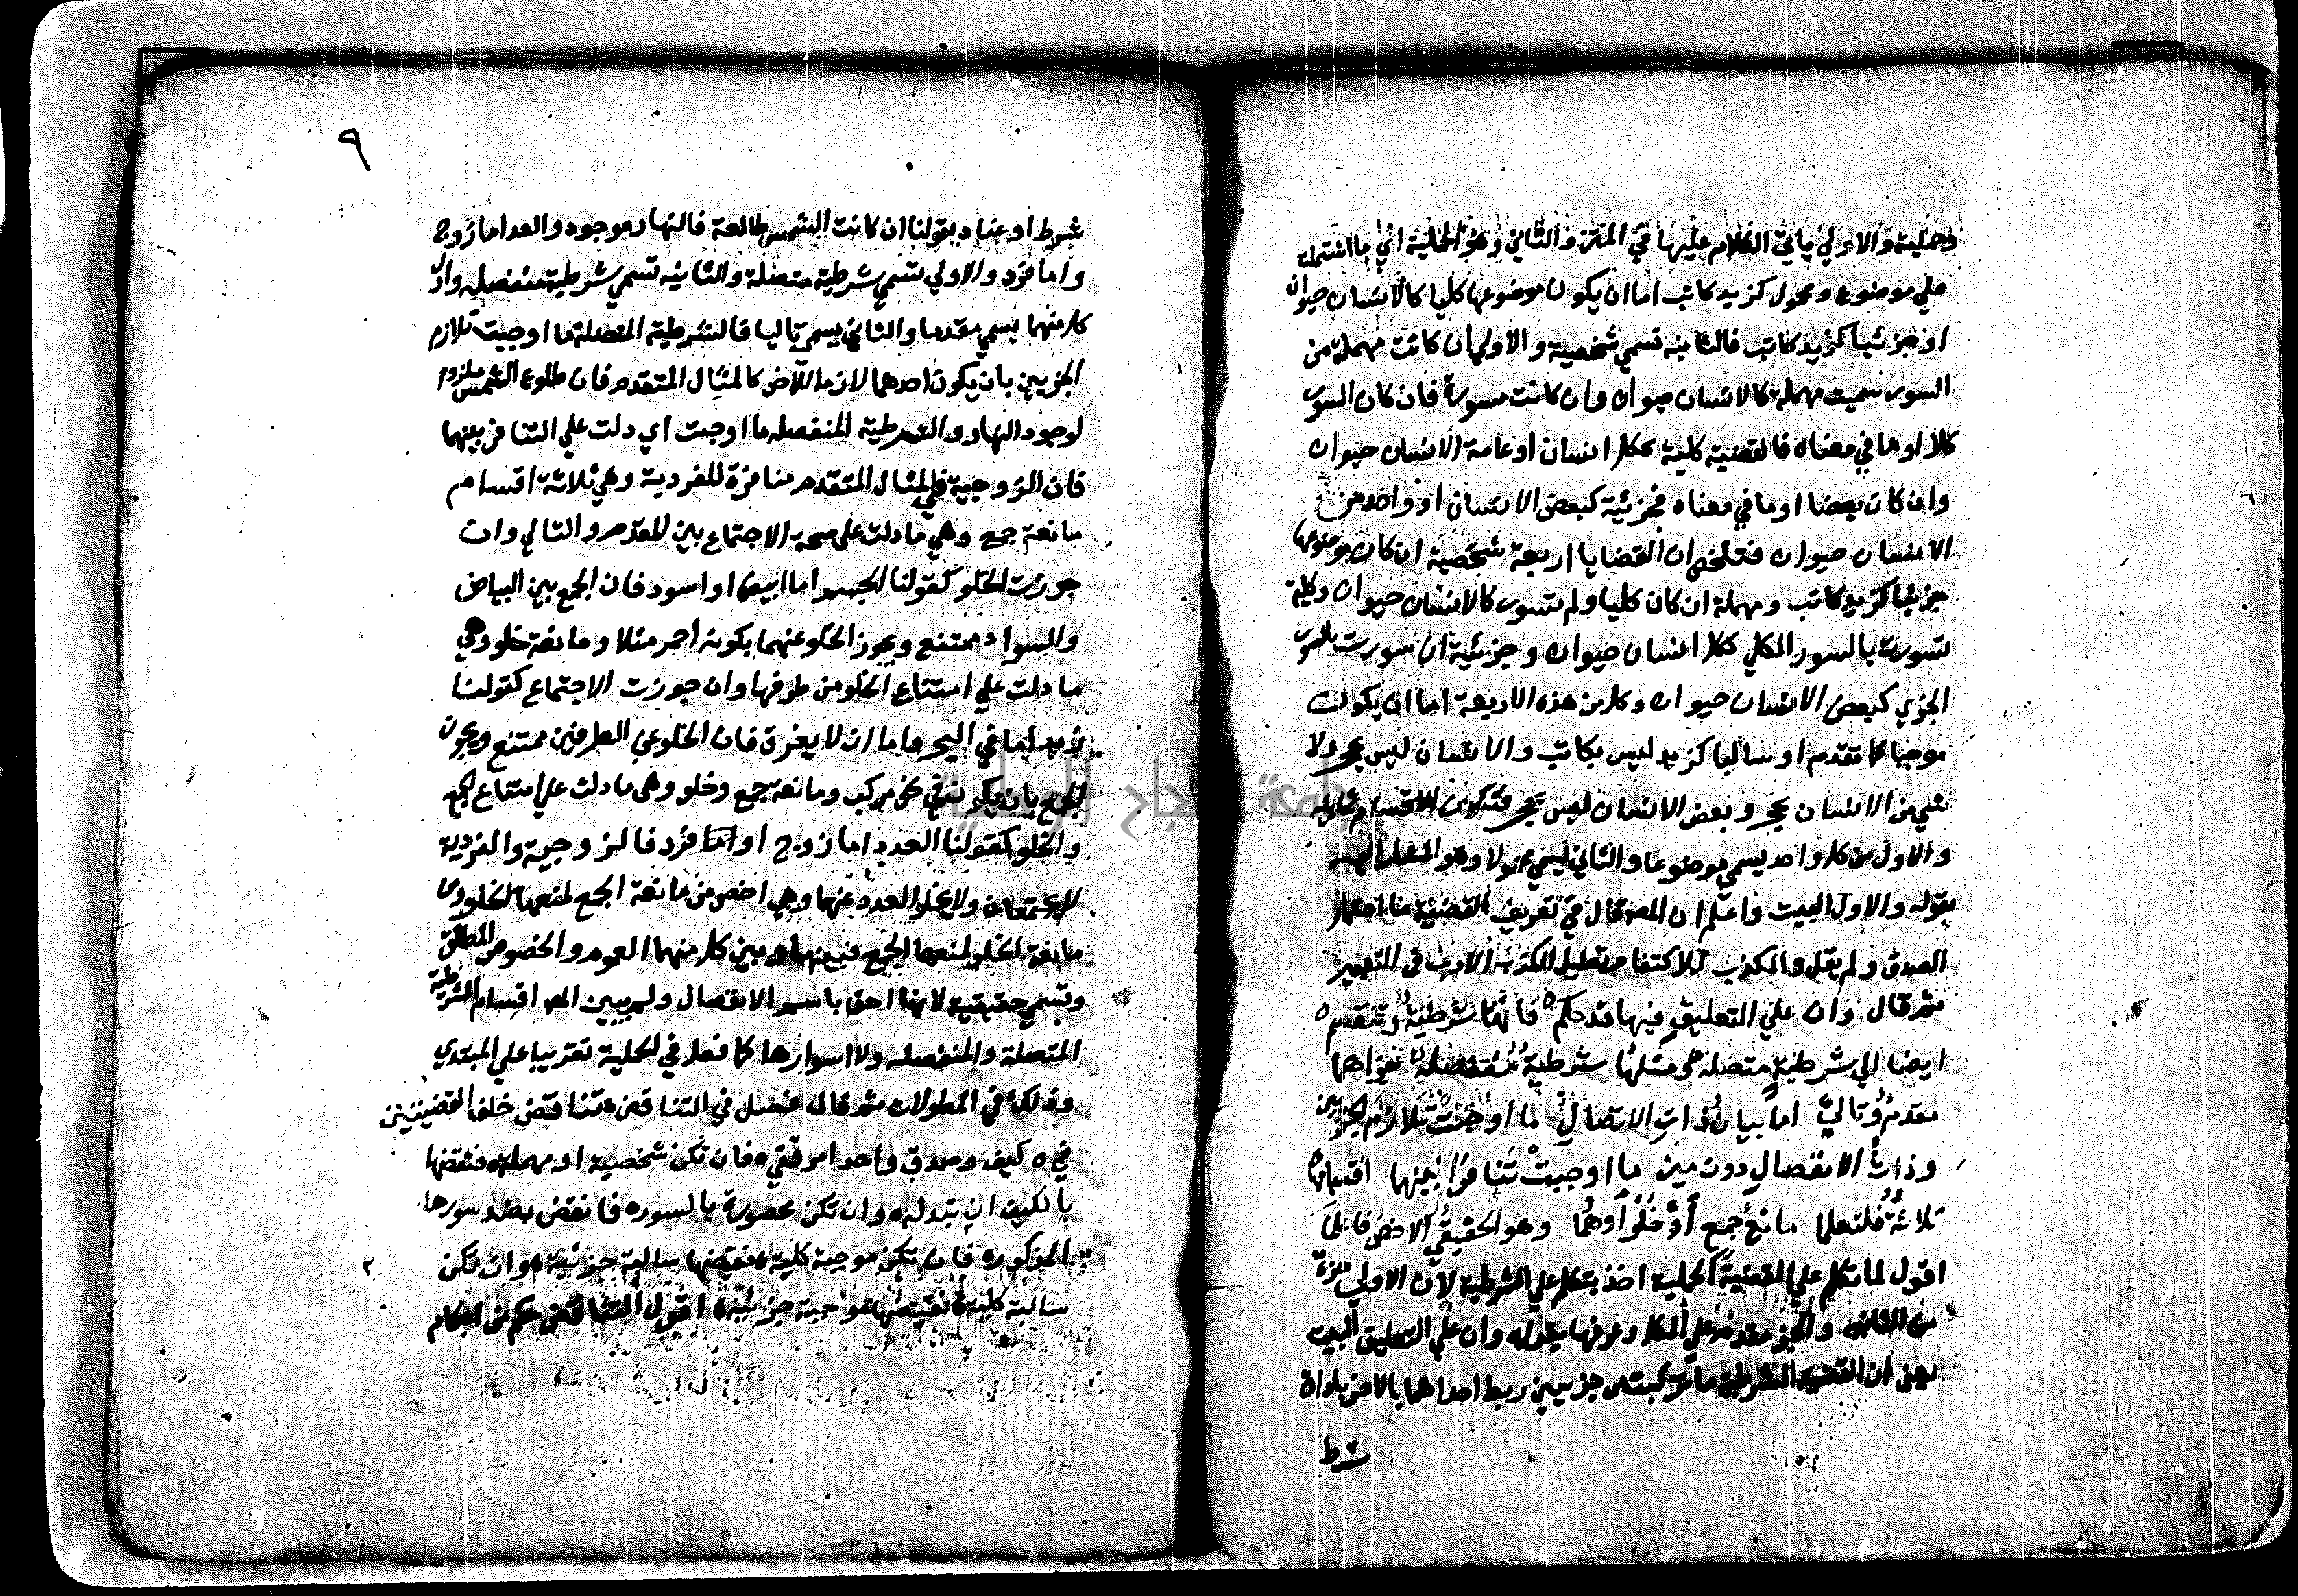 وحملية والاولي ياتي الكلام عليها في المتن والثاني وهو الحملية اي ما اشتملت
علي موضوع ومحمول كزيد كاتب اما ان يكون موضوعها كليا كالانسان حيوان
او جزئيا كزيد كاتب فالثانيه تسمي شخصية والاولي ان كانت مهملة من
السور سميت مهملة كالانسان حيوان وان كانت مسورة فان كان السور
كلا او ما في معناه فالقضية كلية ككل انسان او عامة الانسان حيوان
وان كان بعضا او ما في معناه فجزئية كبعض الانسان او واحد من
الانسان حيوان فتلخص ان القضايا اربعة شخصية ان كان موضوعها
جزئيا كزيد كاتب ومهملة ان كان كليا ولم تسور كالانسان حيوان وكلية
تسورت بالسور الكلي ككل انسان حيوان وجزئية ان سورت بالسور
الجزي كبعض الانسان حيوان وكل من هذه الاربعة اما ان يكون
موجبا كما تقدم او سالبا كزيد ليس بكاتب والانسان ليس بحجر ولا
شي من الانسان بحجر وبعض الانسان ليس بحجر فتكون الاقسام ثمانية
والاول من كل واحد يسمي موضوعا والثاني يسمي محمولا وهو المشار اليه
بقوله والاول البيت واعلم ان المص قال في تعريف القضية ما احتمل
الصدق ولم يقل والكذب للاكتفا وتعليل الكذب الادب في التعبير
ثم قال وان علي التعليق فيها قد حكم ه فانها شرطية وتنقسم ه
ايضا الي شرطية متصله ه ومثلها شرطية منفصله ه جزاهما
مقدم وتالي اما بيان ذات الاتصال ما اوجبت تلازم الجزءين
وذات الانفصال دون مين ما اوجبت تنافرا بينهما اقسامها
ثلاثة فلتعلما مانع جمع أو خلو أو هما وهو الحقيقي الاخص فاعلما
اقول لما تكلم علي القضية الحملية اخذ يتكلم علي الشرطية لان الاولي جزء
من الثانيه والجزء مقدم علي الكل وعرفها بقوله وان علي التعليق البيت
يعني ان القضيه الشرطية ما تركبت من جزءين ربط احداهما بالاخر باداة
شرط
٩
شرط او عناد بقولنا ان كانت الشمس طالعة فالنهار موجود والعدد اما زوج
واما فرد والاولي تسمي شرطية متصلة والثانيه تسمي شرطية منفصله واول
كل منهما يسمي مقدما والثاني يسمي تاليا فالشرطية المتصلة ما اوجبت تلازم
الجزيين بان يكون احدهما لازما للاخر كالمثال المتقدم فان طلوع الشمس ملزوم
لوجود النهار والشرطية المنفصله ما اوجبت اي دلت علي التنافر بينهما
فان الزوجية في المثال المتقدم منافرة للفردية وهي ثلاثة اقسام
مانعة جمع وهي ما دلت علي صحة الاجتماع بين المقدم والتالي وان
جوزت الخلو كقولنا الجسم اما ابيض او اسود فان الجمع بين البياض
والسواد ممتنع ويجوز الخلو عنهما بكونه أحمر مثلا ومانعة خلو وهي
ما دلت علي امتناع الخلو من طرفها وان جوزت الاجتماع كقولنا
زيد اما في البحر واما ان لا يغرق فان الخلو عن الطرفين ممتنع ويجوز
الجمع بان يكون في نحو مركب ومانعة جمع وخلو وهي ما دلت علي امتناع الجمع
والخلو كقولنا العدد اما زوج او اما فرد فالزوجية والفردية
لا يجتمعان ولا يخلو العدد عنهما وهي اخص من مانعة الجمع لمنعها الخلو ومن
مانعة الخلو لمنعها الجمع فبينها وبين كل منهما العموم والخصوص المطلق
وتسمي حقيقية لانها احق باسم الانفصال ولم يبين المص اقسام الشرطية
المتصلة والمنفصله ولا اسوارها كما فعل في الحملية تقريبا علي المبتدي
وذلك في المطولات ثم قال فصل في التناقض ه تناقض خلف القضيتين
في ه كيف وصدق واحد امر قفي ه فان تكن شخصية او مهمله ه فنقضها
بالكيف ان تبدله ه وان تكن محصورة بالسور ه فانقض بضد سورها
المذكور ه فان تكن موجبة كلية ه نقيضها سالبة جزئية ه وان تكن
سالبة كلية ه نقيضها موجبة جزئية ه اقول التناقض حكم من احكام